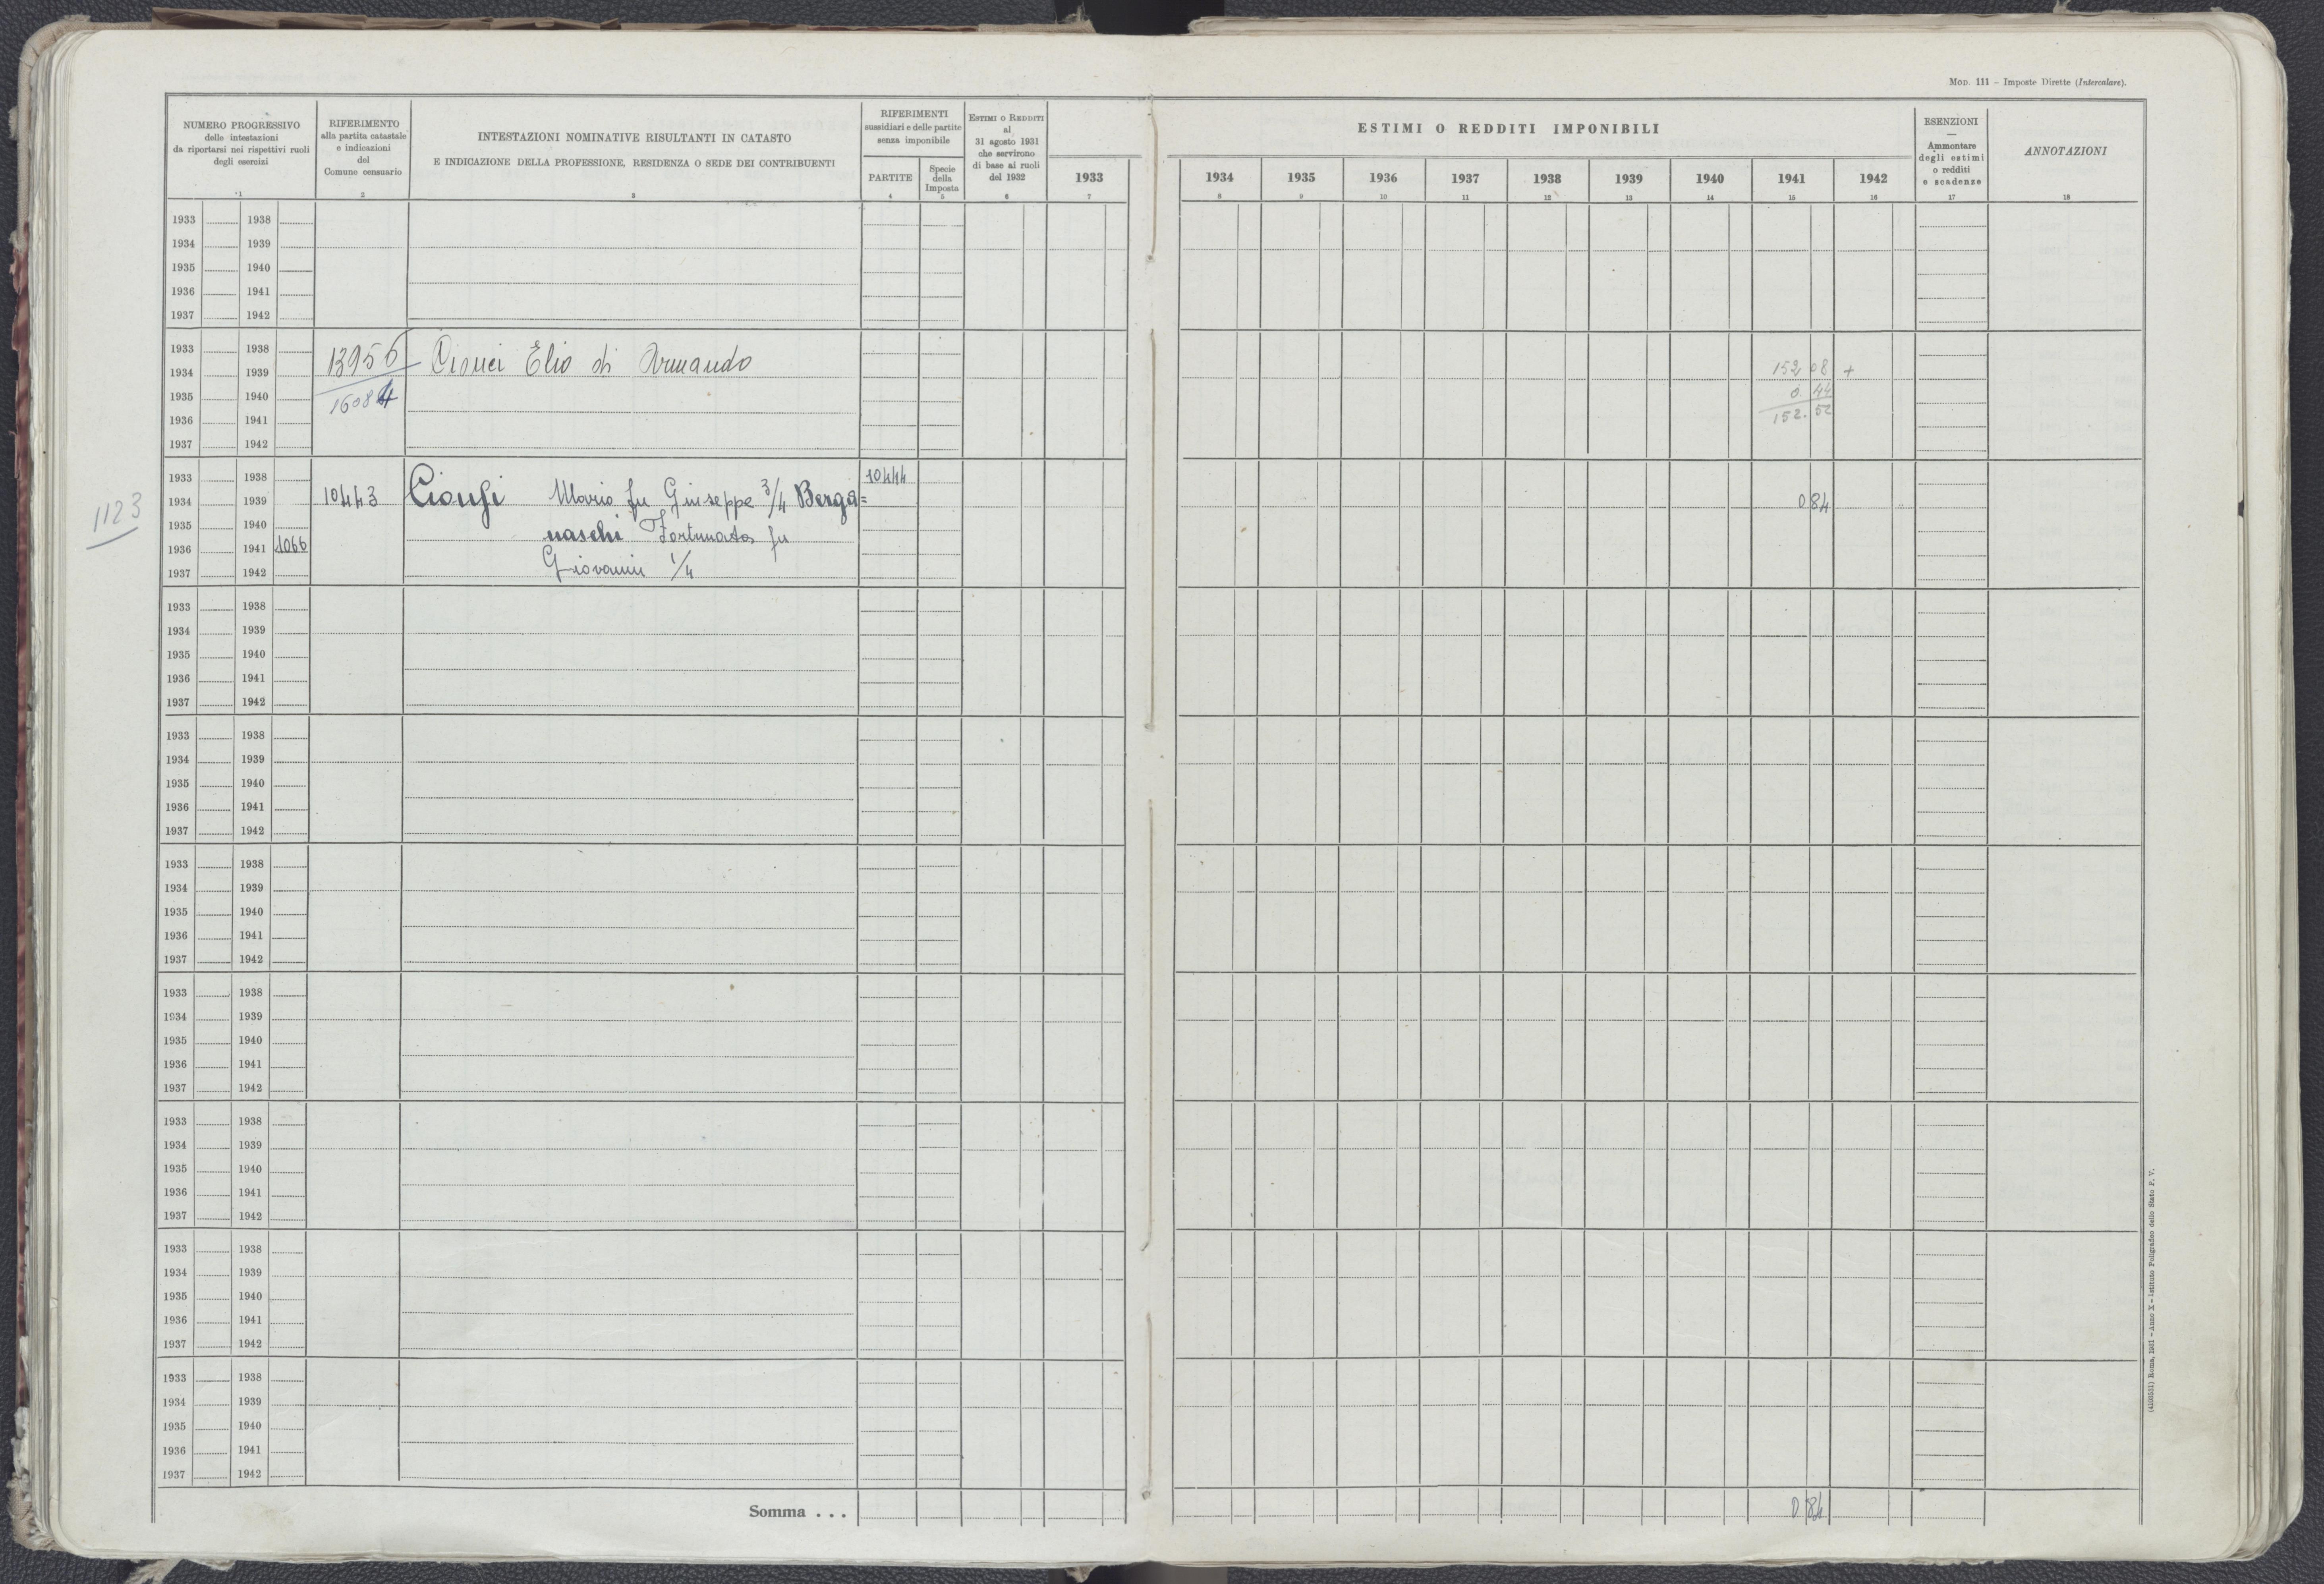 MOD. 111 – Imposte Dirette (Intercalare).
NUMERO PROGRESSIVO
delle intestazioni
da riportarsi nei rispettivi ruoli
degli esercizi
1
RIFERIMENTO
alla partita catastale
e indicazioni
del
Comune censuario
2
INTESTAZIONI NOMINATIVE RISULTANTI IN CATASTO
E INDICAZIONE DELLA PROFESSIONE, RESIDENZA O SEDE DEI CONTRIBUENTI
3
RIFERIMENTI
sussidiari e delle partite
senza imponibile
PARTITE
4
Specie
della
Imposta
5
ESTIMI O REDDITI
al
31 agosto 1931
che servirono
di base ai ruoli
del 1932
6
1933
7
ESTIMI O REDDITI IMPONIBILI
1934 1935 1936 1937 1938 1939 1940 1941 1942
8 9 10 11 12 13 14 15 16
ESENZIONI
—
Ammontare
degli estimi
o redditi
e scadenze
17
ANNOTAZIONI
18
1933 1938
1934 1939
1935 1940
1936 1941
1937 1942
1933 1938
1934 1939 13956 Cionci Elio di Armando 152 08 +
1935 1940 16084 0. 44
1936 1941 152. 52
1937 1942
1933 1938 10444
1123 1934 1939 10443 Mario fu Giuseppe 3/4 Berga= 0 84
1935 1940 naschi Fortunato fu
1936 1941 1066
1937 1942 Giovanni 1/4
1933 1938
1934 1939
1935 1940
1936 1941
1937 1942
1933 1938
1934 1939
1935 1940
1936 1941
1937 1942
1933 1938
1934 1939
1935 1940
1936 1941
1937 1942
1933 1938
1934 1939
1935 1940
1936 1941
1937 1942
1933 1938
1934 1939
1935 1940
1936 1941
1937 1942
1933 1938
1934 1939
1935 1940
1936 1941
1937 1942
1933 1938
1934 1939
1935 1940
1936 1941
1937 1942
Somma . . . 0 84